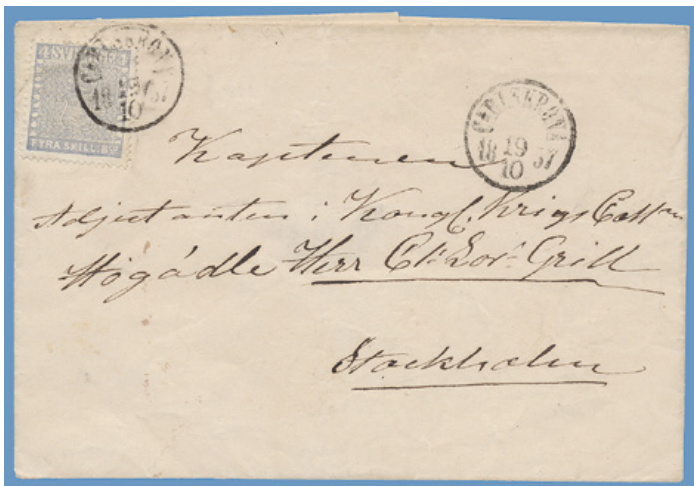 4 SVERIGE
FYRA SKILL. BCO
CARLSKRONA
18 19 57
10
CARLSKRONA
18 19 57
10
Kapitenen
Adjutanten i Kongl. Krigs
Högädle Herr Grill
Stockholm